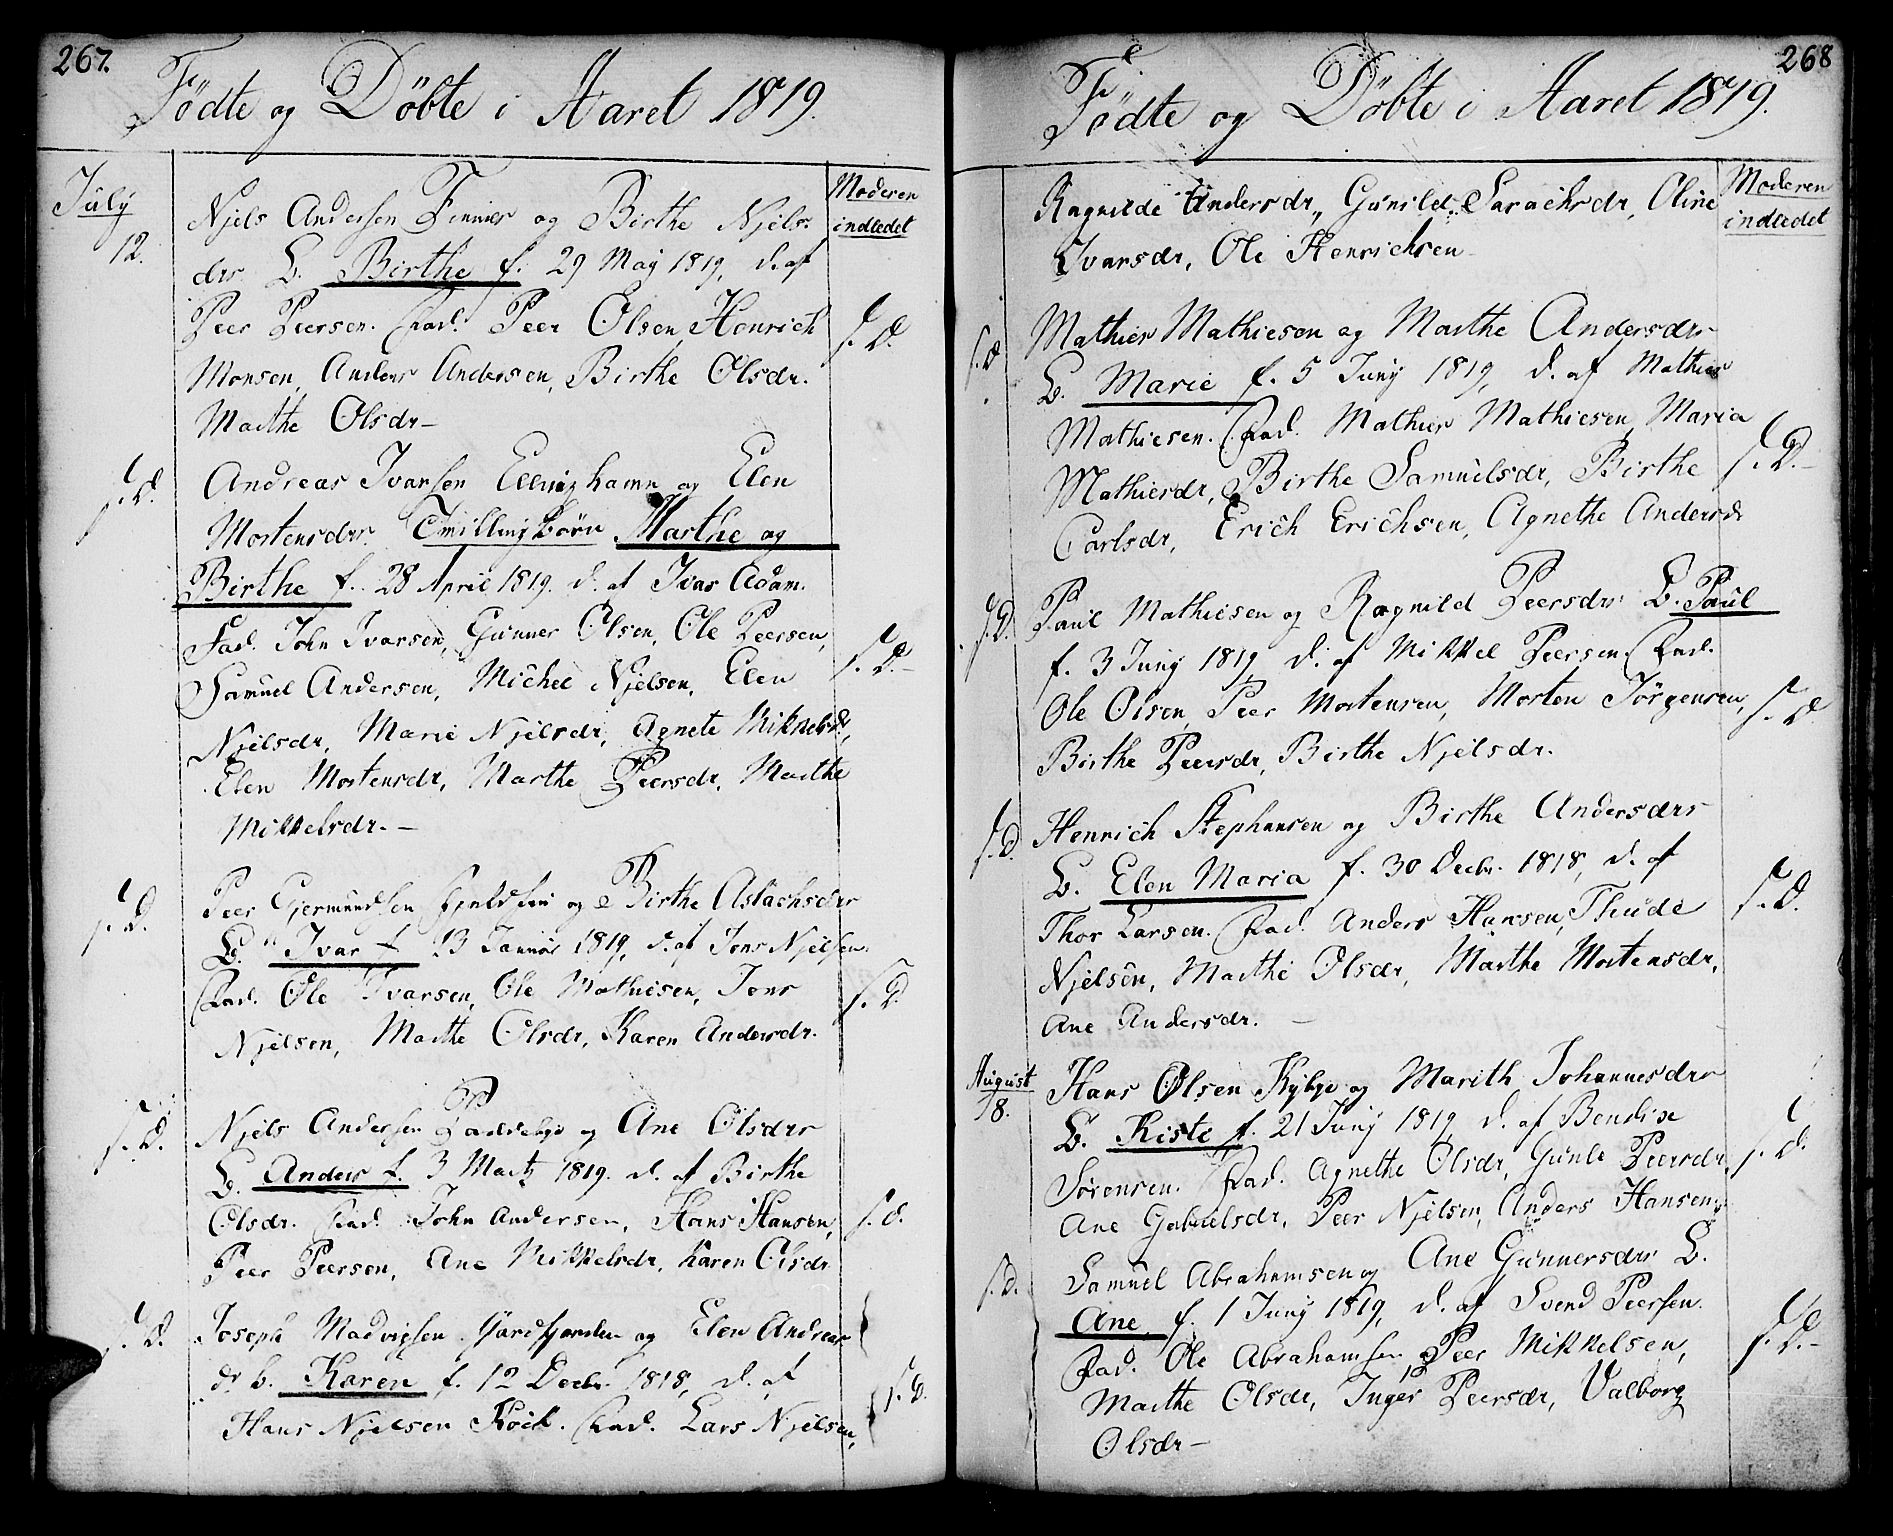 267.
Födte og Döbte i Aaret 1819.
July
12.
Moderen
indledet
Njels Andersen Finner og Birthe Njels-
drr B. Birthe f. 29 May 1819, d. af
Peer Peersen. Fad. Peer Olsen, Henrich
Monsen, Anders Andersen, Birthe Olsdr.
Marthe Olsdr-
s. D.
s. D.
Andreas Ivarsen Ellinghamn og Elen
Mortensdrr. Tvillingbörn Marthe og
Birthe f. 28 April 1819. d. af Ivar Adam.
Fad. John Ivarsen, Gunner Olsen, Ole Peersen,
Samuel Andersen, Michel Njelsen, Elen
Njelsdr, Marie Njelsdr, Agnete Mikkelsdr,
Elen Mortensdr, Marthe Peersdr, Marthe
Mikkelsdr.-
s. D-
s. D.
Peer Gjermundsen og Birthe Aslachsdrr
B. Ivar f. 13 Januar 1819, d. af Jens Njelsen.
Fad. Ole Ivarsen, Ole Mathiesen, Jens
Njelsen, Marthe Olsdr, Karen Andersdr.
s. D.
s. D.
Njels Andersen Paddebye og Ane Olsdrr
B. Anders f. 3 Martz 1819. d. af Birthe
Olsdr. Fad. John Andersen, Hans Hansen,
Peer Peersen, Ane Mikkelsdr, Karen Olsdr
s. d.
s. D.
Joseph Madvigsen og Elen Andreas
dr b. Karen f. 12 Decbr. 1818, d. af
Hans Njelsen Koch. Fad. Lars Njelsen,
s. D.
268
Födte og Döbte i Aaret 1819.
Moderen
indledet
Ragnilde Andersdr, Gunild Sarachsdr, Oline
Ivarsdr, Ole Henrichsen-
s. d
Mathies Mathiesen og Marthe Andersdrr
B. Marie f. 5 Juny 1819, d. af Mathias
Mathiesen. Fad. Mathies Mathiesen, Maria
Mathiesdr, Birthe Samuelsdr, Birthe
Carlsdr, Erich Erichsen, Agnethe Andersdr
s. D.-
s. D.
Paul Mathiesen og Ragnild Peersdrr B. Paul
f. 3 Juny 1819, d. af Mikkel Peersen. Fad.
Ole Olsen, Peer Mortensen, Morten Jörgensen,
Birthe Peersdr, Birthe Njelsdr.
s. D
s. D.
Henrich Stephansen og Birthe Andersdrr
B. Elen Maria f. 30 Decbr. 1818, d. af
Thor Larsen. Fad. Anders Hansen, Thude
Njelsen, Marthe Olsdr, Marthe Mortensdr,
Ane Andersdr. -
s. D.
August
18.
Hans Olsen Kybye og Marith Johannesdrr
B. Kiste f. 21 Juny 1819, d. af Bendixe
Sörensen. Fad. Agnethe Olsdr, Gunle Peersdr,
Ane Gabrielsdr, Peer Njelsen, Anders Hansen.
s. D.
s. D.
Samuel Abrahamsen og Ane Gunnersdrr B.
Ane f. 1 Juny 1819, d. af Svend Peersen.
Fad. Ole Abrahamsen, Peer Mikkelsen,
Marthe Olsdr, Inger Peersdr, Valborg
Olsdr-
s. D.-